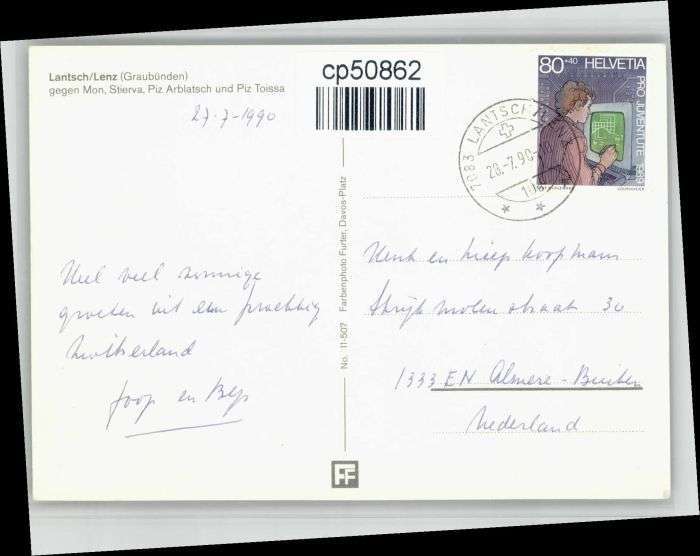 Lantsch/Lenz (Graubünden)
gegen Mon, Stierva, Piz Arblatsch und Piz Toissa
27-7-1990
cp50862
80+40 HELVETIA
PRO JUVENTUTE 1989
7083 LANTSCH/L
28.-7.90-
Heel veel zonnige
groeten uit een prachtig
Zwitserland
Joop en Bep
No. 11-507 Farbenphoto Furter, Davos-Platz
Henk en Koopmans
molen straat 30
1333 EN Almere-Buiten
Nederland
FF